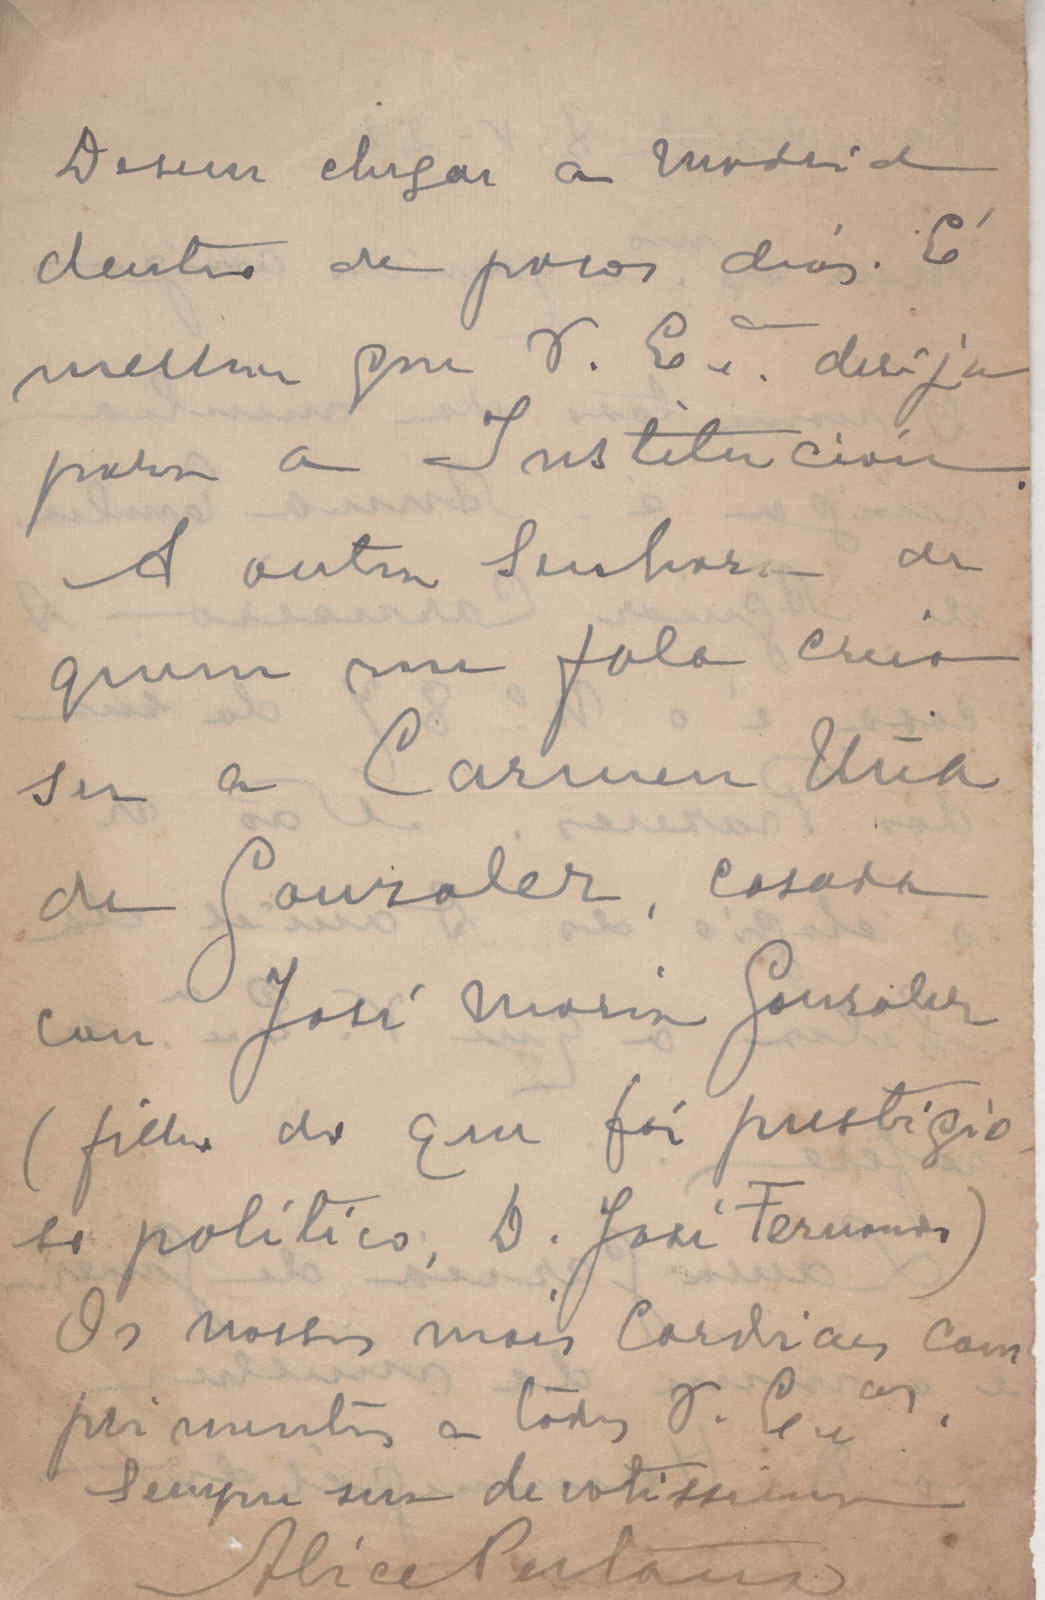 Devem chegar a Madrid
dentro de poucos dias. É
melhor que V. Ex.ª dirija
para a Institución.
A outra Senhora de
quem me fala creio
ser a Carmen Uña
de Gonzalez, casada
con José Maria Gonzalez
(filho do que foi prestigio-
so politico, D. José Fernando)
Os nossos mais cordiaes com
primentos a todos V. Ex.as.
Sempre sua devotissima
Alice Pestana